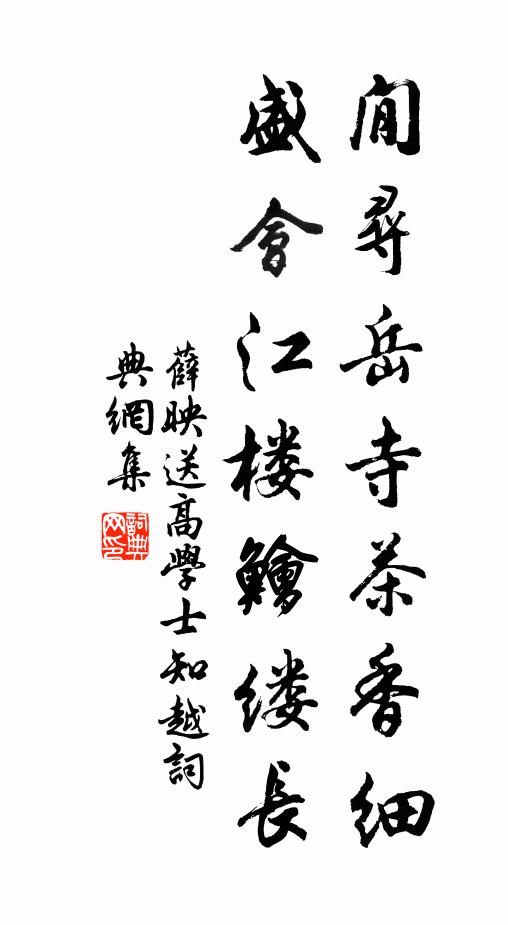 閒尋岳寺茶香細
盛會江楼鱠缕長
薛映送高學士知越詞
典網集
詞典
网印